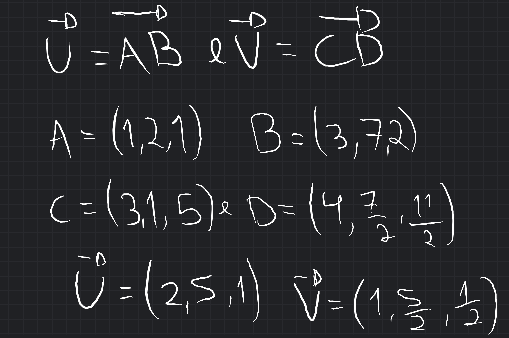 U⃗ = AB⃗ e V⃗ = CD⃗
A = (1,2,1) B = (3,7,2)
C = (3,1,5) e D = (4, 7/2, 11/2)
U⃗ = (2,5,1) V⃗ = (1, 5/2, 1/2)